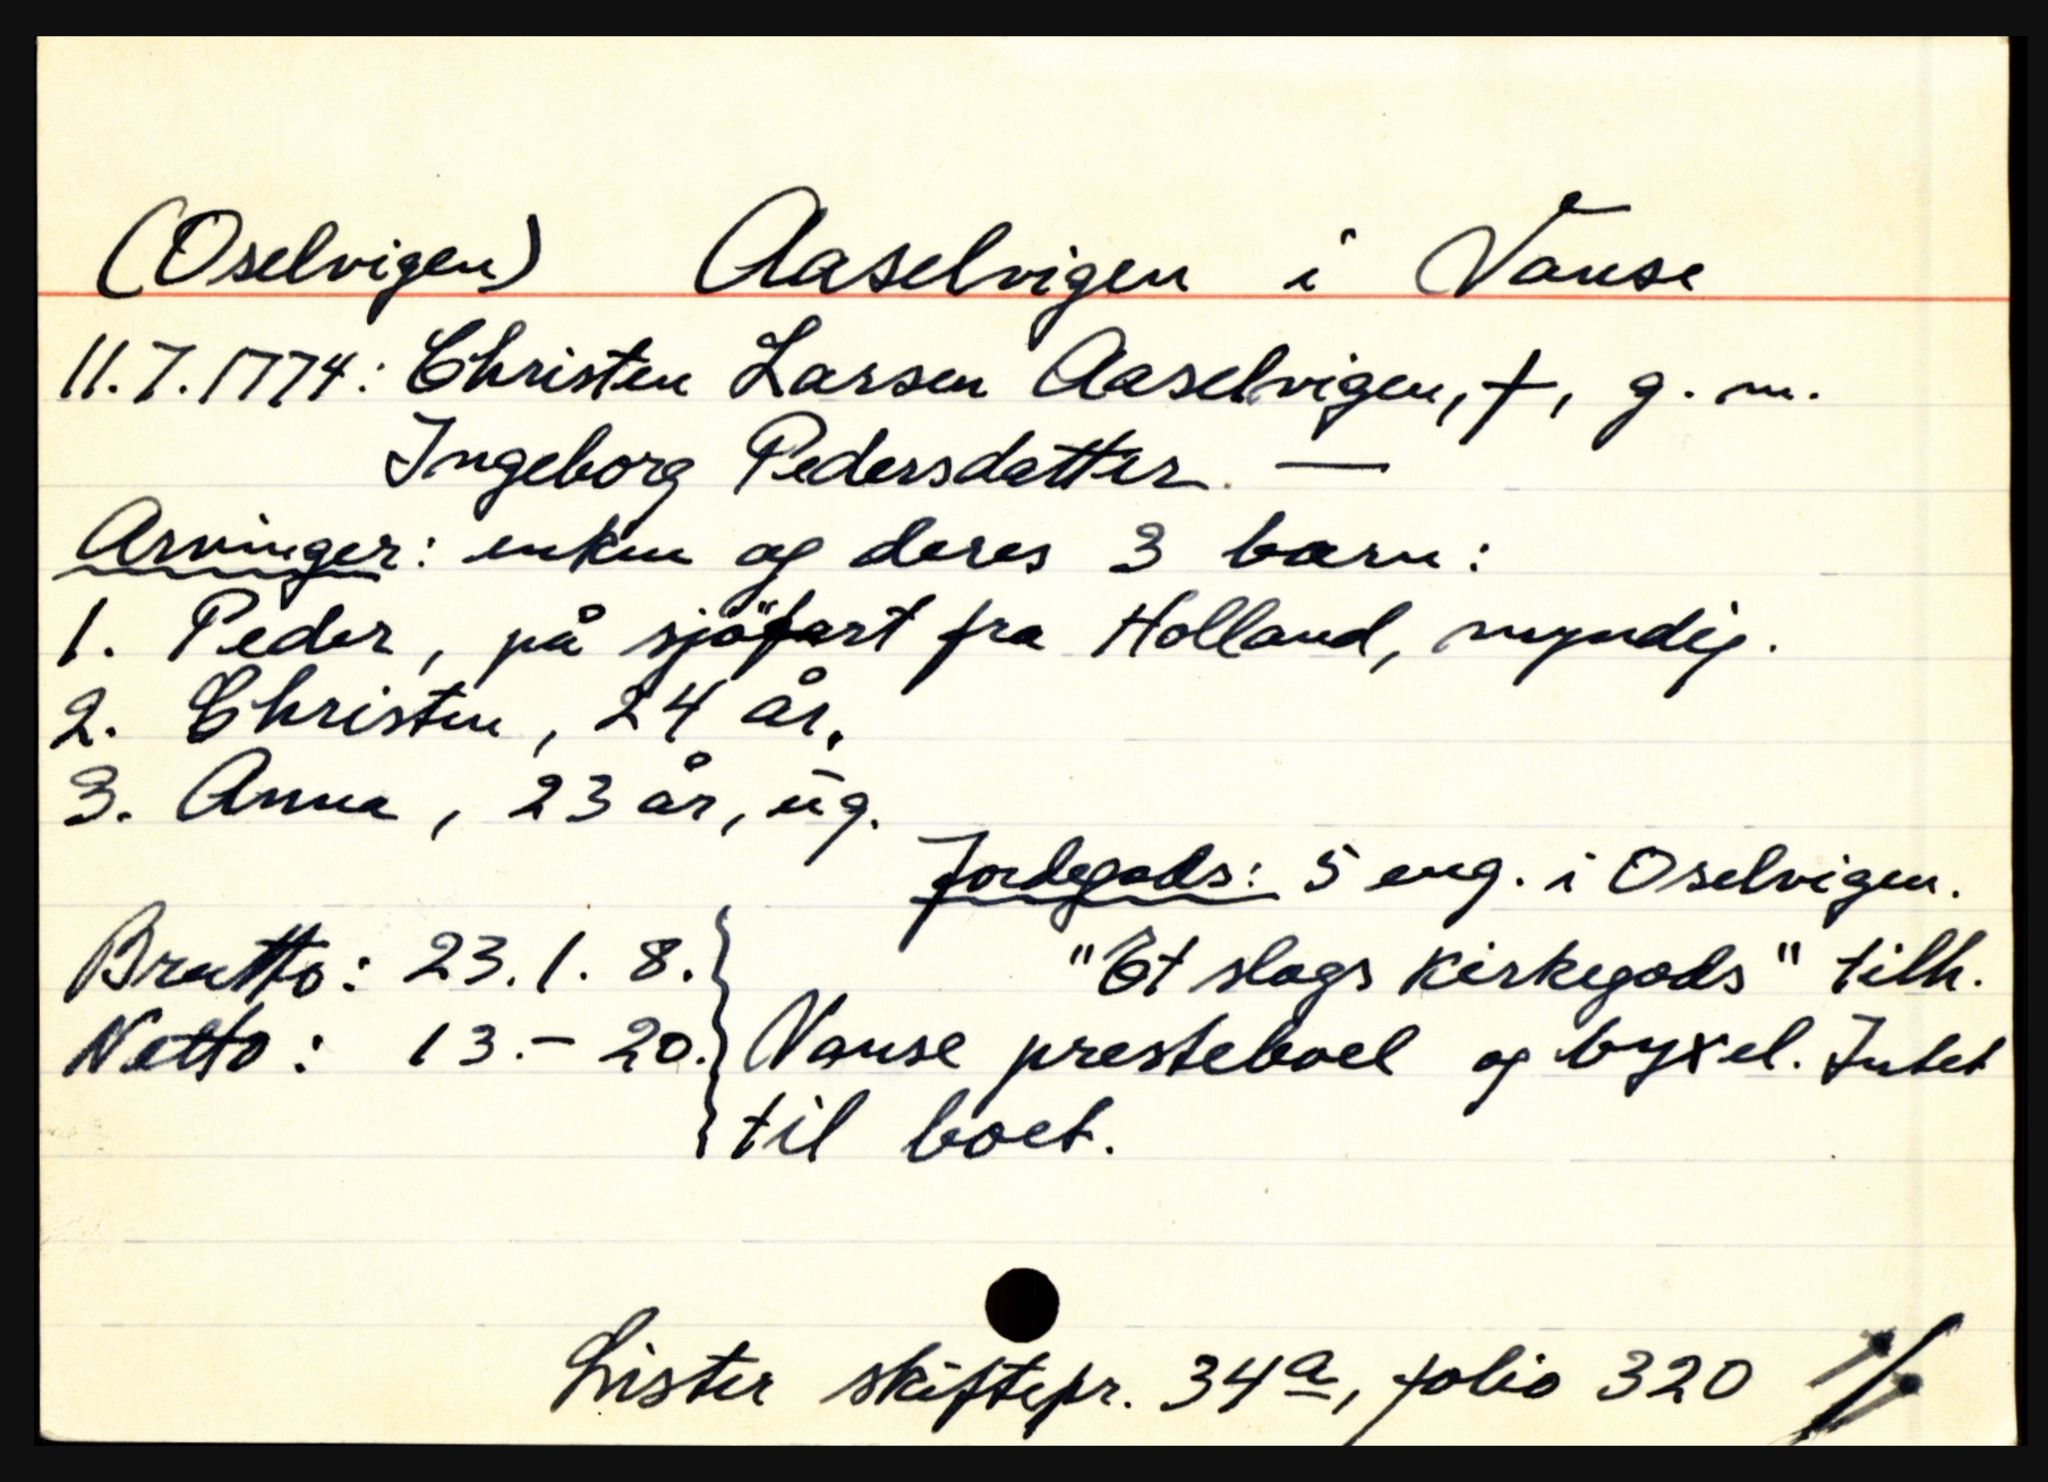 (Oselvigen) Aaselvigen i Vanse
11.7.1774: Christen Larsen Aaselvigen, †, g. m.
Ingeborg Pedersdatter. —
Arvinger: enken og deres 3 barn:
1. Peder, på sjöfart fra Holland, myndig.
2. Christen, 24 år.
3. Anna, 23 år, ug.
Jordegods: 5 eng. i Oselvigen.
Brutto: 23. 1. 8. "Et slags Kirkegods" tilh.
Netto: 13.– 20. Vanse presteboel og byxel. Intet
til boet.
Lister skiftepr. 34a, folio 320